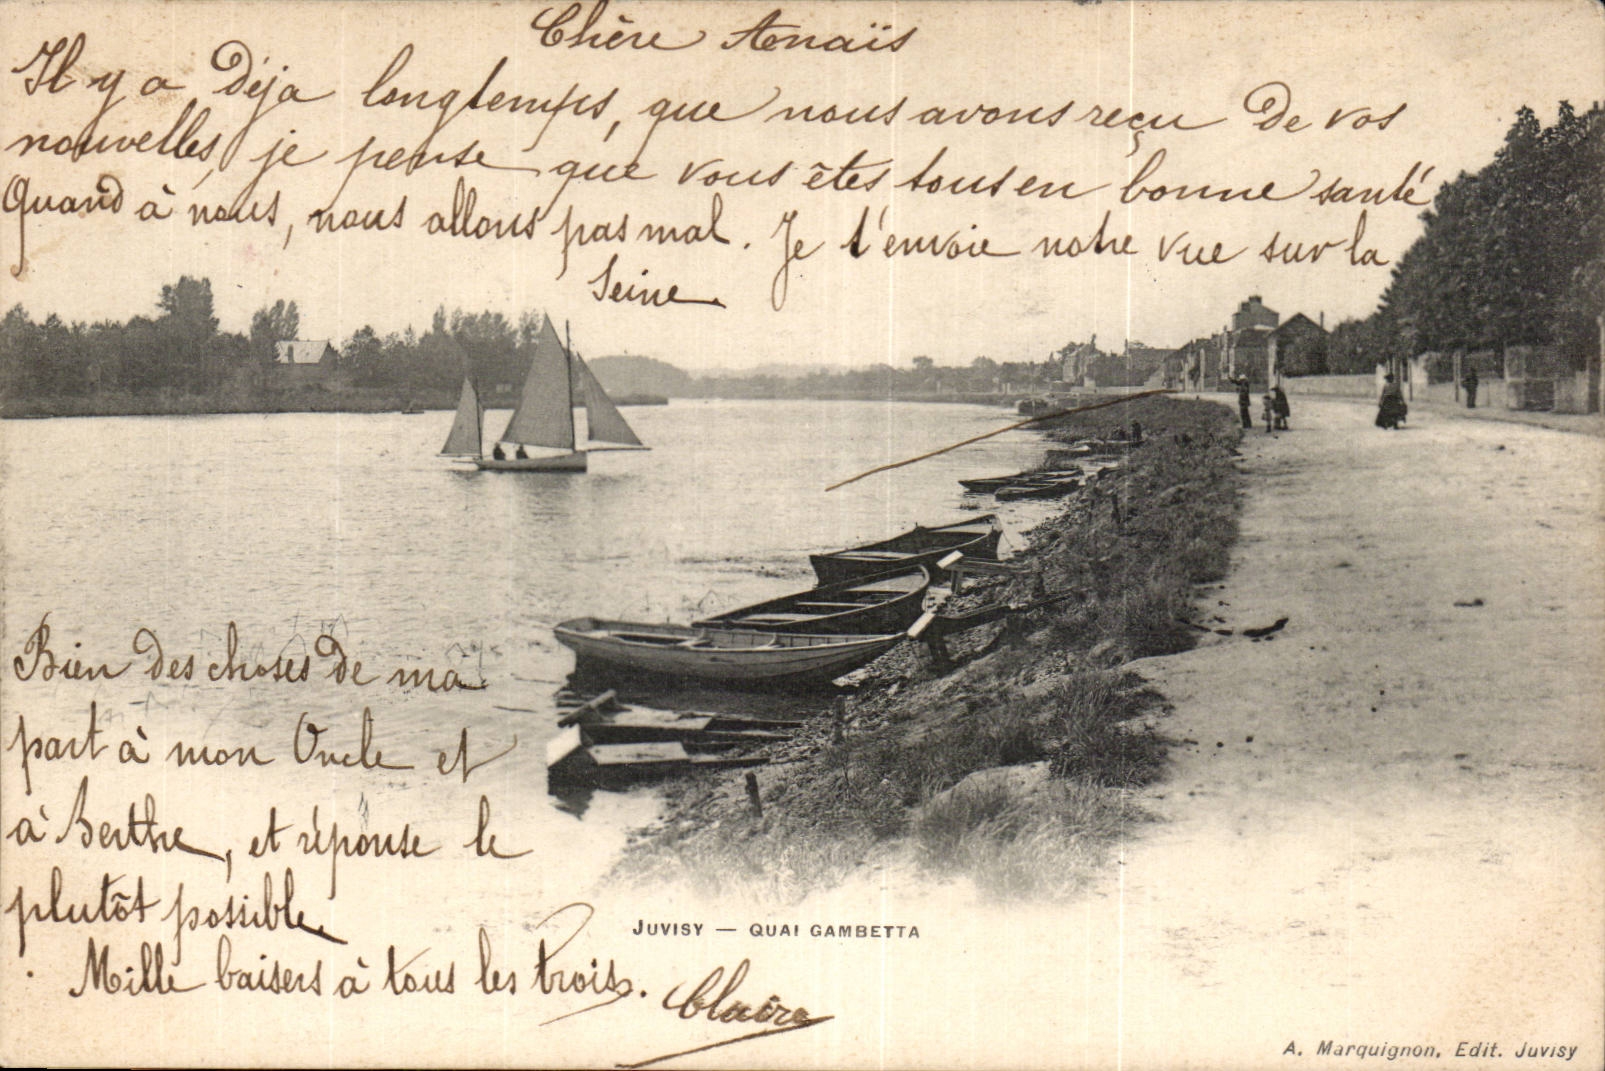 Chère Anaïs
Il y a Déja longtemps, que nous avons reçu De vos
nouvelles, je pense que vous êtes tous en bonne santé
Quand à nous, nous allons pas mal. Je t'envoie notre vue sur la
Seine.
Bien des choses De ma
part à mon Oncle et
à Berthe, et réponse le
plutôt possible.
Mille baisers à tous les trois.
Claire
JUVISY — QUAI GAMBETTA
A. Marquignon, Edit. Juvisy